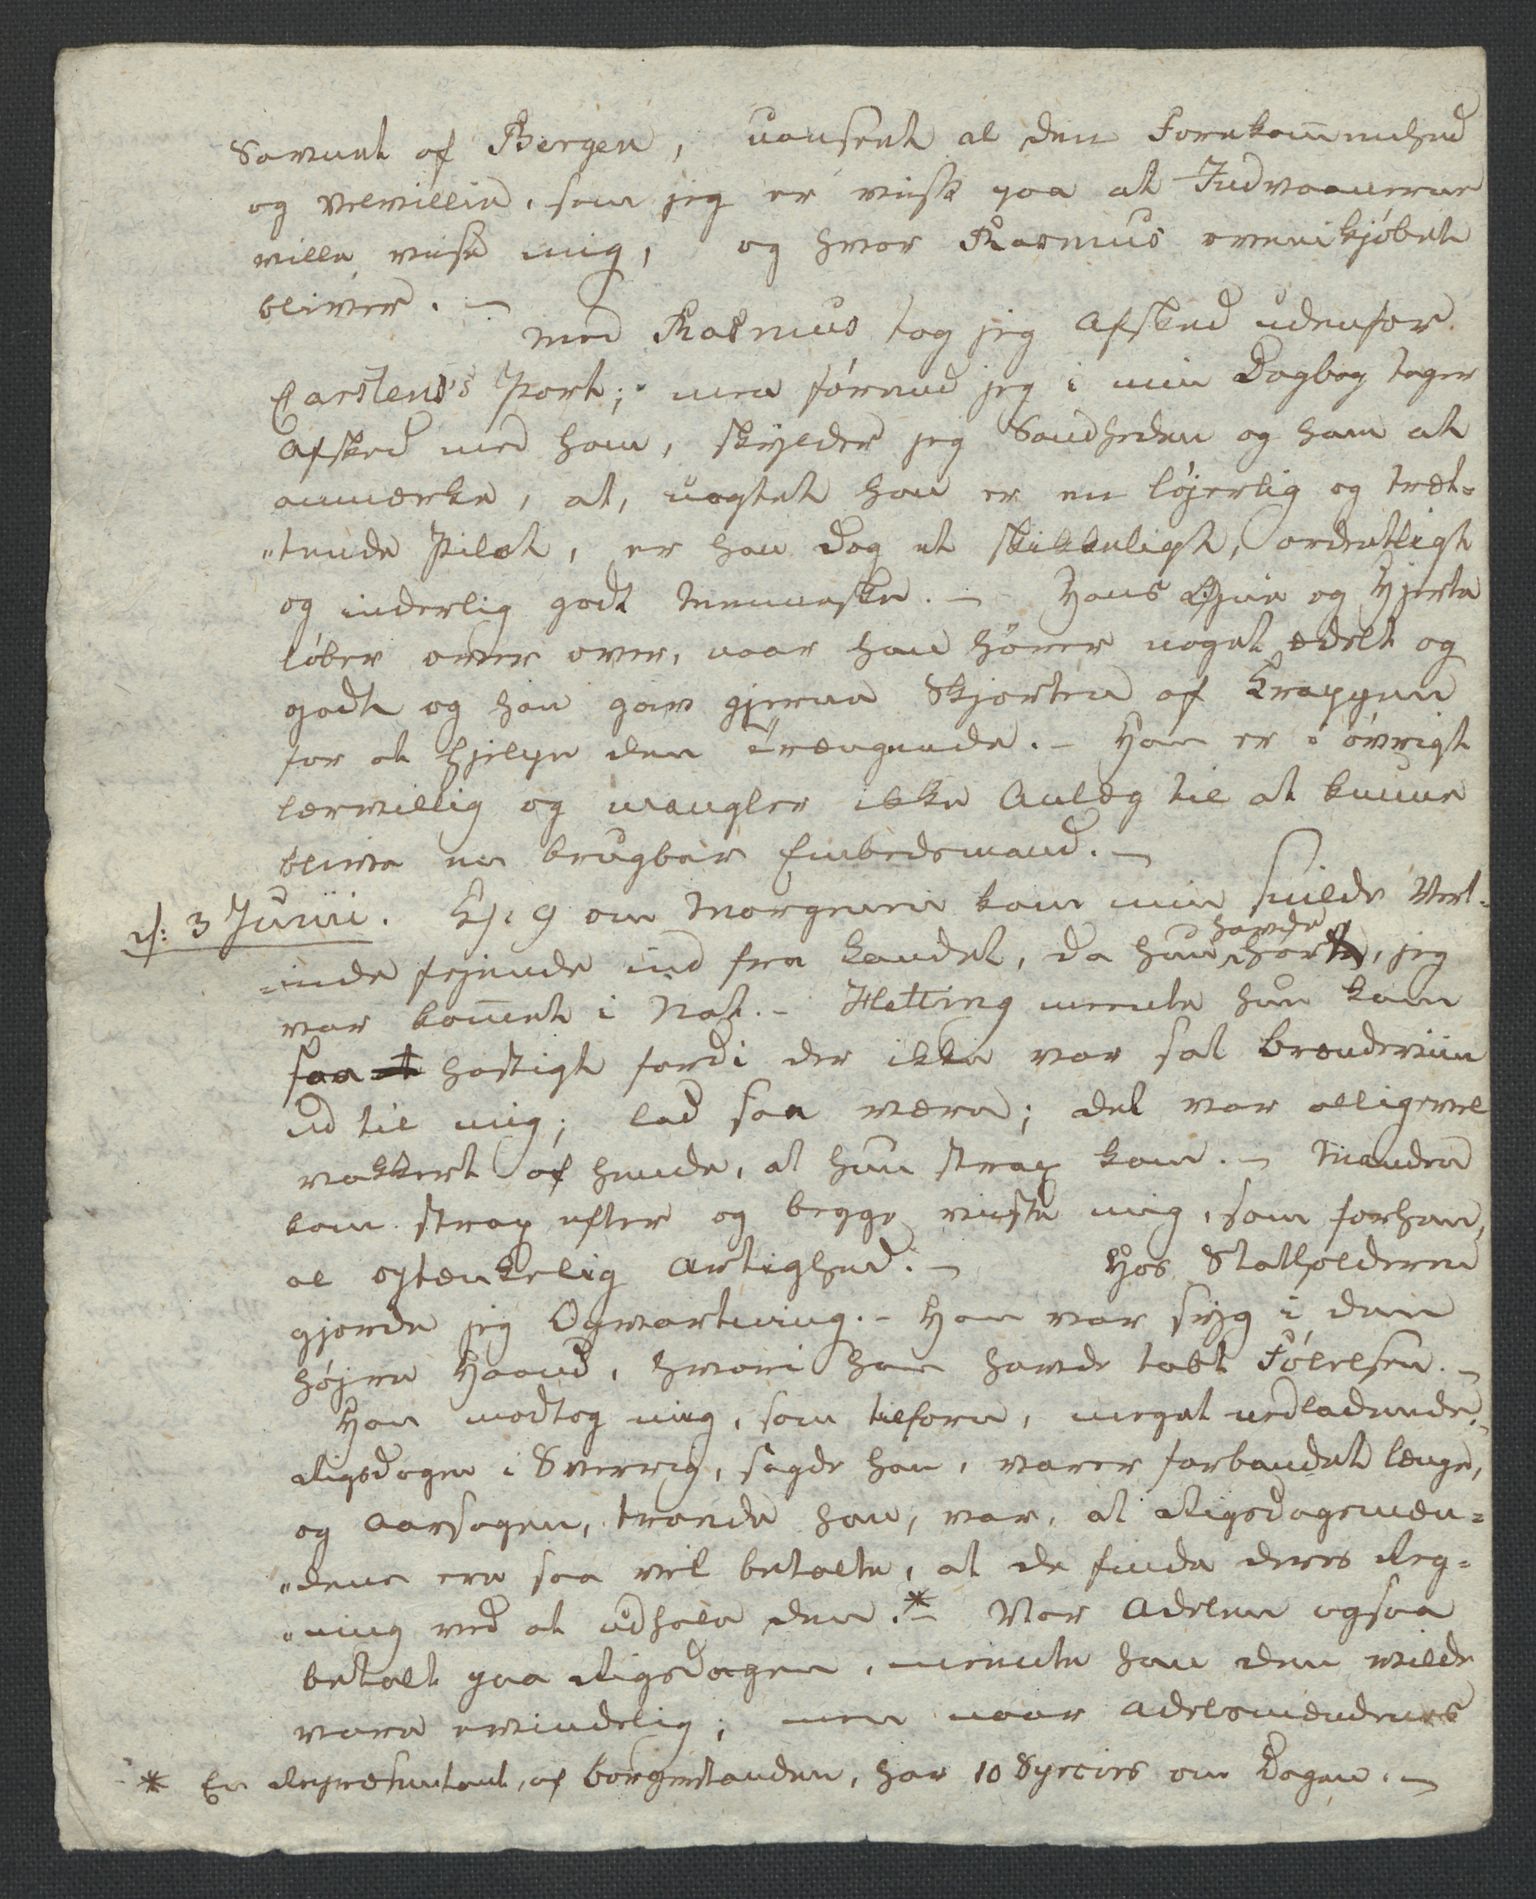 Savnet af Bergen, uanseet al den Forekom̅enhed
og Velvillie, som jeg er viss paa at Indvaanerne
ville vise mig, og hvor Rasmus ovenikjøbet
bliver. —
Med Rasmus tog jeg Afsked udenfor
Carstens's Port; men førend jeg i min Dagbog tager
Afsked med ham, skylder jeg Sandheden og ham at
anmærke, at, uagtet han er en løjerlig og træt-
"tende Pilot, er han dog et skikkeligt, ordentligt
og inderlig godt Menneske. — Hans Øjne og Hjerte
løber over over, naar han hører noget ædelt og
godt og han gav gjerne Skjorten af Kroppen
for at hjelpe den Trængende. — Han er i øvrigt
lærvillig og mangler ikke Anlæg til at kunne
blive en brugbar Embedsmand. —
d: 3 Junii. Kl. 9 om Morgenen kom min snilde Vert-
"inde fejende ind fra Landet, da hun havde hørt, jeg
var kom̅et i Nat. — Hetting meente hun kom
saa hastigt fordi der ikke var sat Brændeviin
ud til mig; lad saa være; det var alligevel
vakkert af hende, at hun strax kom. — Manden
kom strax efter og begge viiste mig, som forhen,
al optænkelig Artighed. — Hos Statholderen
gjorde jeg Opvartning. — Han var syg i den
højre Haand, hvori han havde tabt Følelsen. —
Han modtog mig, som tilforn, meget nedladende.
Rigsdagen i Sverrig, sagde han, varer forbandet længe,
og Aarsagen, troede han, var, at Rigsdagsmæn-
"dene ere saa vel betalte, at de finde deres Reg-
"ning ved at udhale den.* — Var Adelen ogsaa
betalt paa Rigsdagen, meente han den vilde
vare evindelig; men naar Adelsmændenes
* En Repræsentant, af Borgerstanden, har 10 Specier om Dagen. —